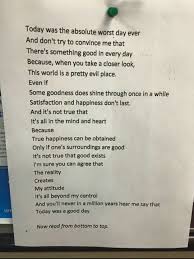 Today was the absolute worst day ever
And don't try to convince me that
There's something good in every day
Because, when you take a closer look,
This world is a pretty evil place.
Even if
Some goodness does shine through once in a while
Satisfaction and happiness don't last.
And it's not true that
It's all in the mind and heart
Because
True happiness can be obtained
Only if one's surroundings are good
It's not true that good exists
I'm sure you can agree that
The reality
Creates
My attitude
It's all beyond my control
And you'll never in a million years hear me say that
Today was a good day
Now read from bottom to top.